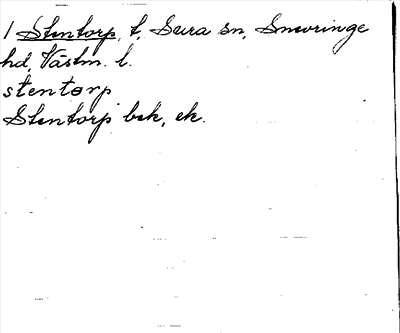 1 Stentorp, t, Sura sn, Snevringe
hd, Västm. l.
stentorp
Stentorp bek, ek.